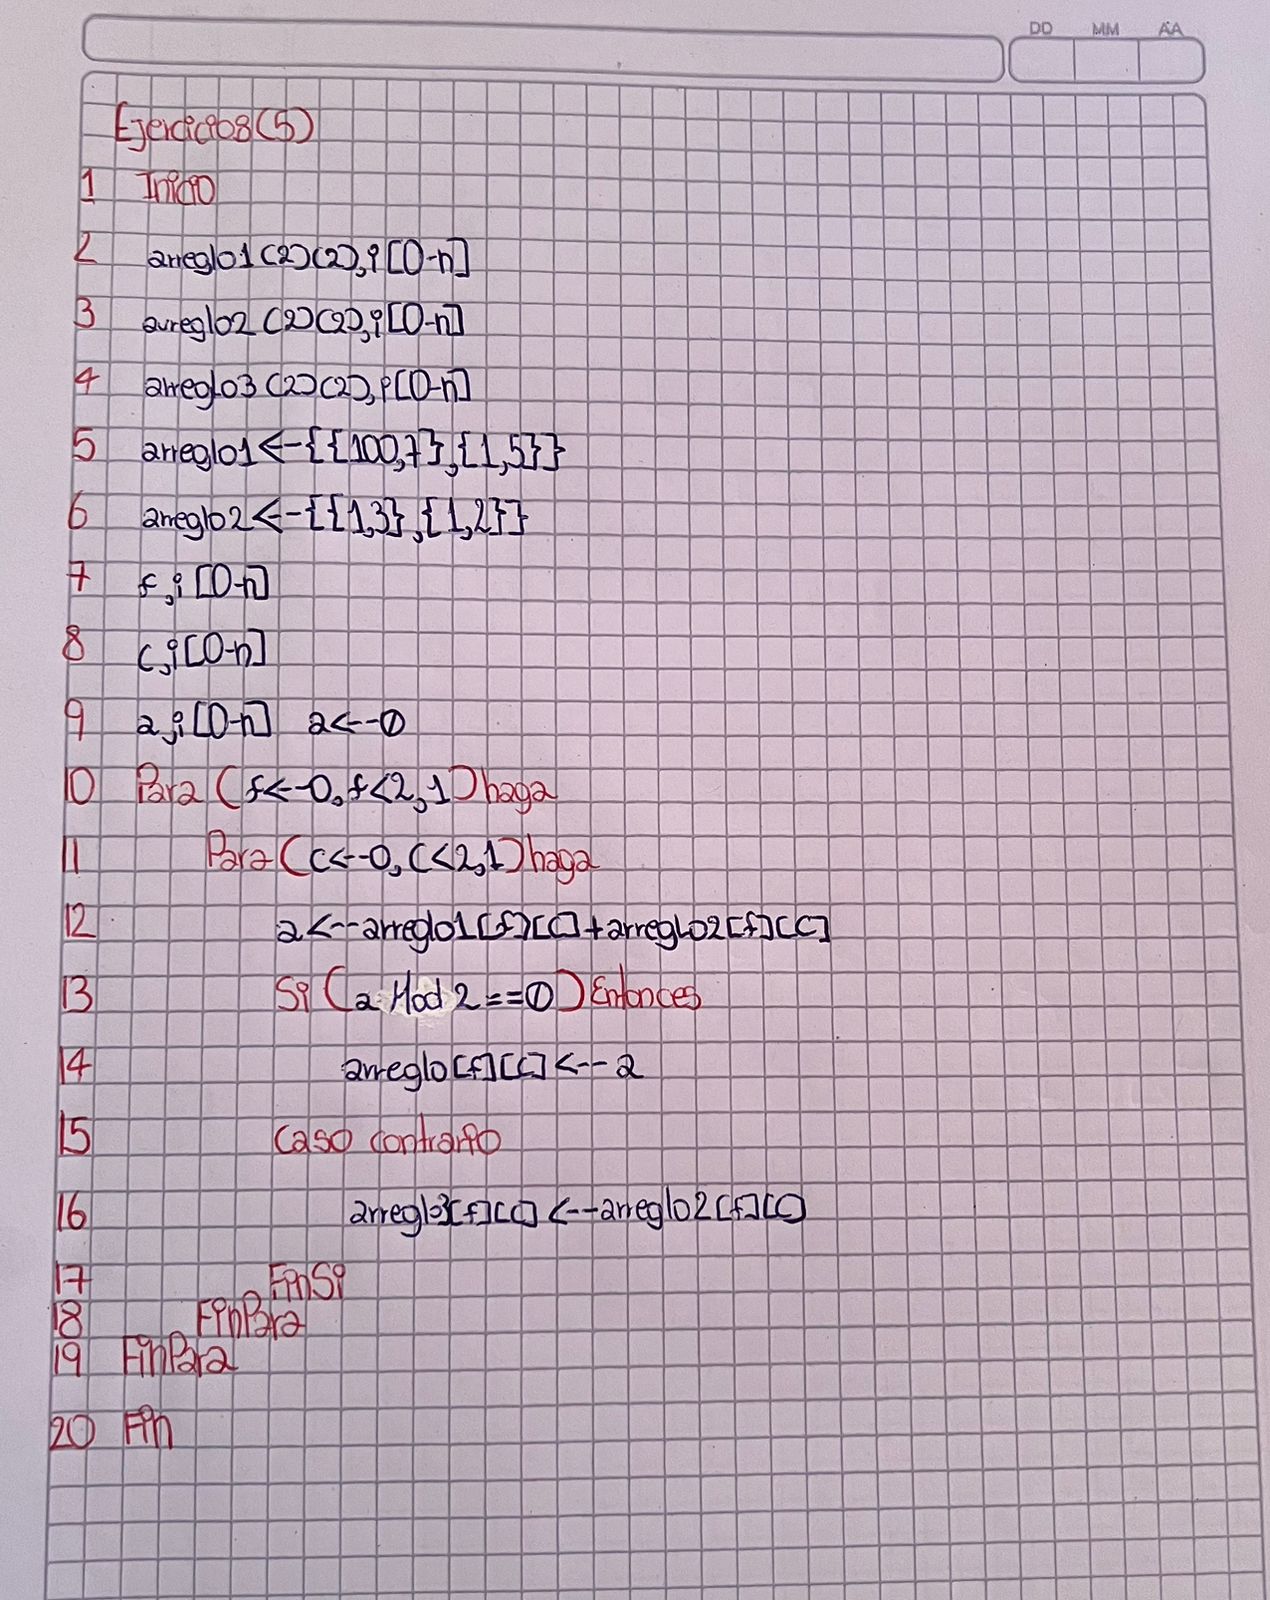 DD MM AA
Ejercicios(5)
1 Inicio
2 arreglo1(2)(2),i[0-n]
3 arreglo2(2)(2),i[0-n]
4 arreglo3(2)(2),i[0-n]
5 arreglo1<-{{100,7},{1,5}}
6 arreglo2<-{{1,3},{1,2}}
7 f,i[0-n]
8 c,i[0-n]
9 a,i[0-n] a<--0
10 Para (f<--0,f<2,1)haga
11 Para(c<--0,c<2,1)haga
12 a<--arreglo1[f][c]+arreglo2[f][c]
13 Si (a Mod 2==0)Entonces
14 arreglo[f][c]<--a
15 Caso contrario
16 arregl3[f][c]<--arreglo2[f][c]
17 FinSi
18 FinPara
19 FinPara
20 Fin